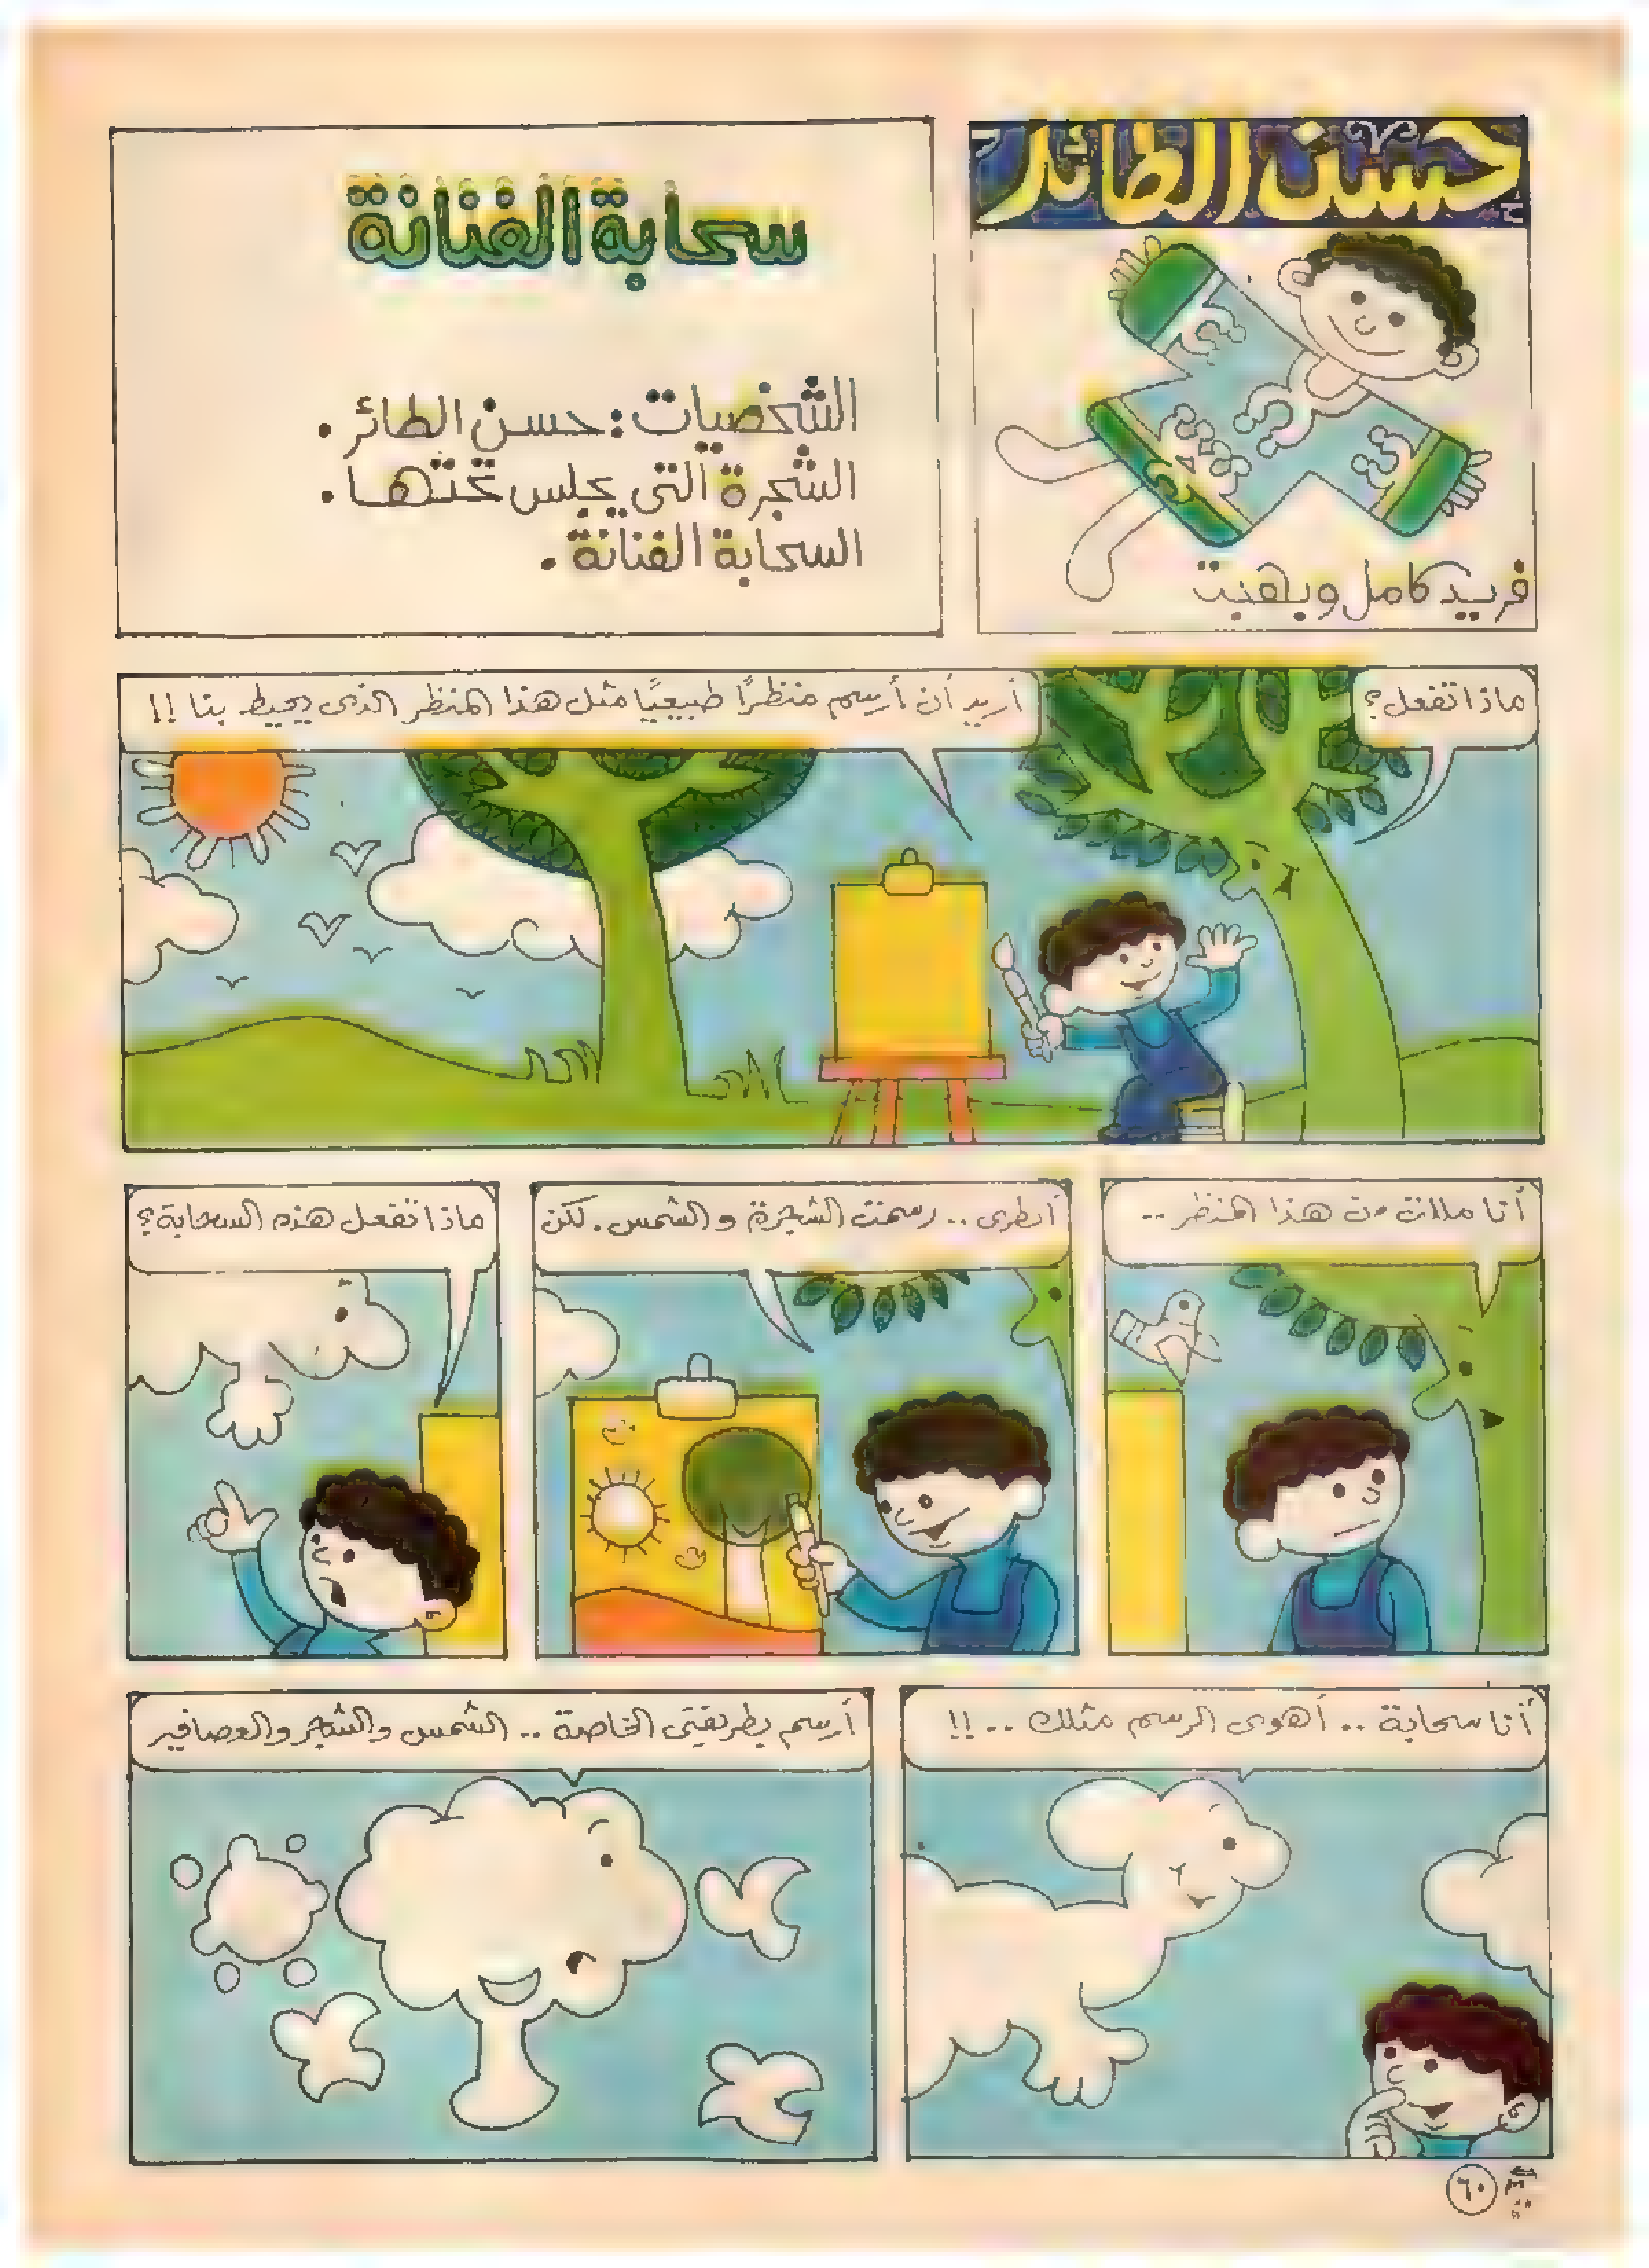 حسن الطائر
فريد كامل وبهجت
سحابة الفنانة
الشخصيات: حسن الطائر.
الشجرة التى يجلس تحتها.
السحابة الفنانة.
ماذا تفعل؟
أريد أن أرسم منظرًا طبيعيًا مثل هذا المنظر الذى يحيط بنا !!
أنا مللت من هذا المنظر ..
انظرى .. رسمت الشجرة و الشمس. لكن
ماذا تفعل هذه السحابة؟
أنا سحابة .. أهوى الرسم مثلك .. !!
أرسم بطريقتى الخاصة .. الشمس والشجر والعصافير
٦٠